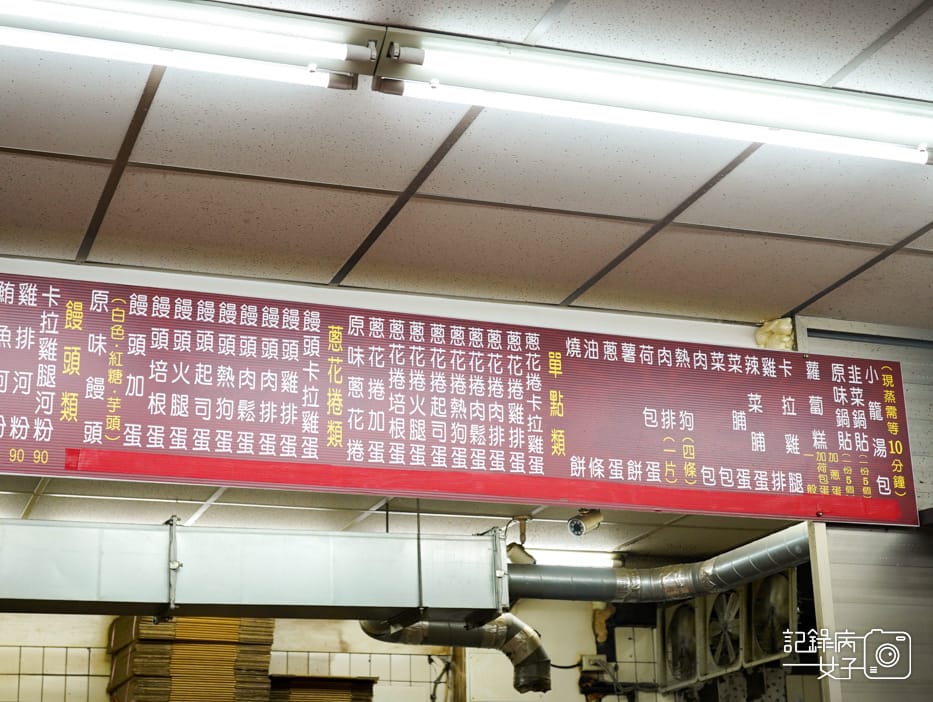 鮪魚河粉
雞排河粉 90
卡拉雞腿河粉 90
饅頭類
原味饅頭
(白色.紅糖.芋頭)
饅頭加蛋
饅頭培根蛋
饅頭火腿蛋
饅頭起司蛋
饅頭熱狗蛋
饅頭肉鬆蛋
饅頭肉排蛋
饅頭雞排蛋
饅頭卡拉雞蛋
蔥花捲類
原味蔥花捲
蔥花捲加蛋
蔥花捲培根蛋
蔥花捲火腿蛋
蔥花捲起司蛋
蔥花捲熱狗蛋
蔥花捲肉鬆蛋
蔥花捲肉排蛋
蔥花捲雞排蛋
蔥花捲卡拉雞蛋
單點類
燒餅
油條
蔥蛋
薯餅
荷包蛋
肉排(一片)
熱狗(四條)
肉包
菜包
菜脯蛋
辣菜脯蛋
雞排
卡拉雞腿
蘿蔔糕
一般
加荷包蛋
加蔥蛋
原味鍋貼(一份5個)
韭菜鍋貼(一份5個)
小籠湯包
(現蒸需等10分鐘)
記錄病女子